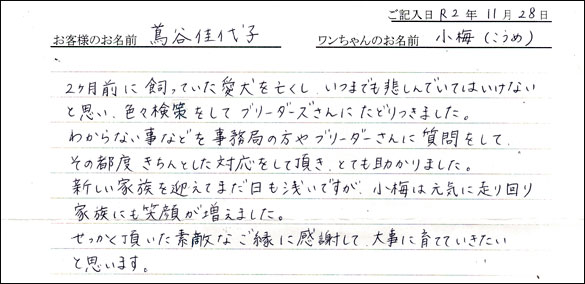 ご記入日 R2年 11月 28日
お客様のお名前 蔦谷佳代子 ワンちゃんのお名前 小梅(こうめ)
2ヶ月前に飼っていた愛犬を亡くし、いつまでも悲しんでいてはいけない
と思い、色々検策をしてブリーダーズさんにたどりつきました。
わからない事などを事務局の方やブリーダーさんに質問をして、
その都度きちんとした対応をして頂き、とても助かりました。
新しい家族を迎えてまだ日も浅いですが、小梅は元気に走り回り
家族にも笑顔が増えました。
せっかく頂いた素敵なご縁に感謝して、大事に育てていきたい
と思います。